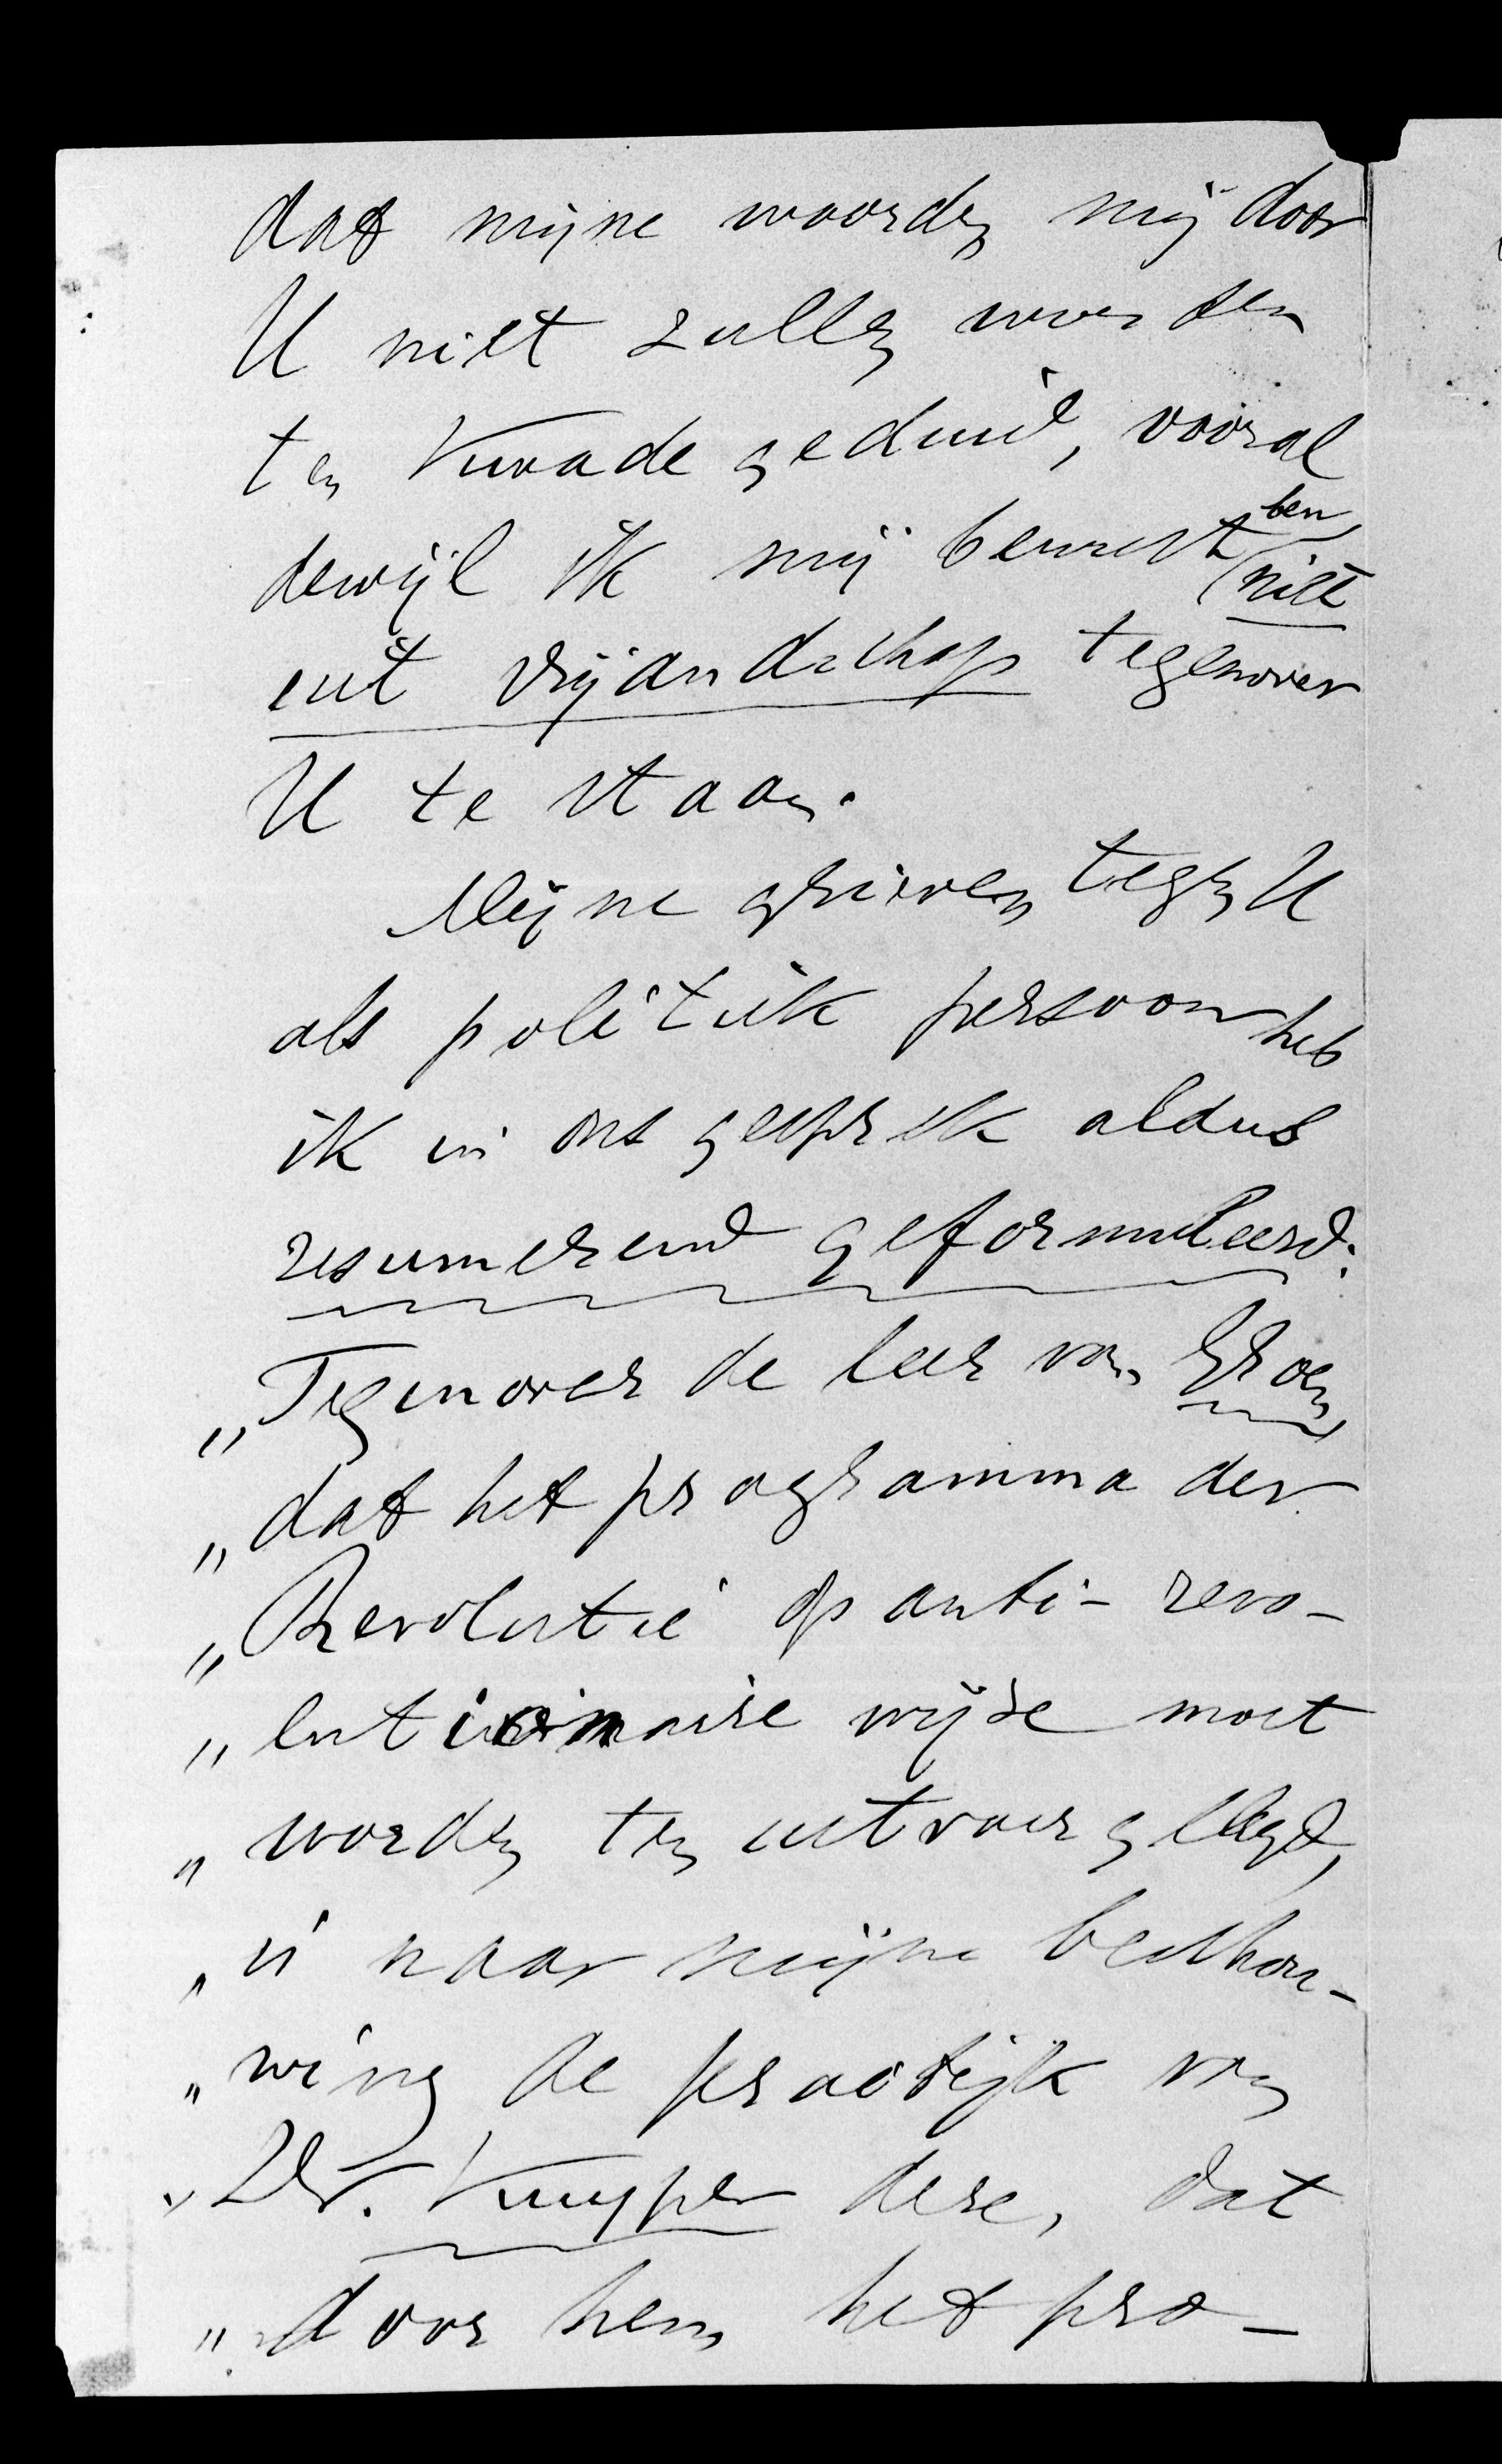 dat mijne woorden mij door
U niet zullen worden
ten kwade geduid, vooral
dewijl ik mij bewust ben niet
uit vijandschap tegenover
U te staan.
Mijne grieven tegen U
als politiek persoon heb
ik in ons gesprek aldus
resumerend geformuleerd:
„Tegenover de leer van Groen,
„dat het programma der
„Revolutie op anti-revo-
„lutionaire wijze moet
„worden ten uitvoer gelegd,
„is naar mijne beschou-
„wing de practijk van
„Dr. Kuyper deze, dat
„door hem het pro-